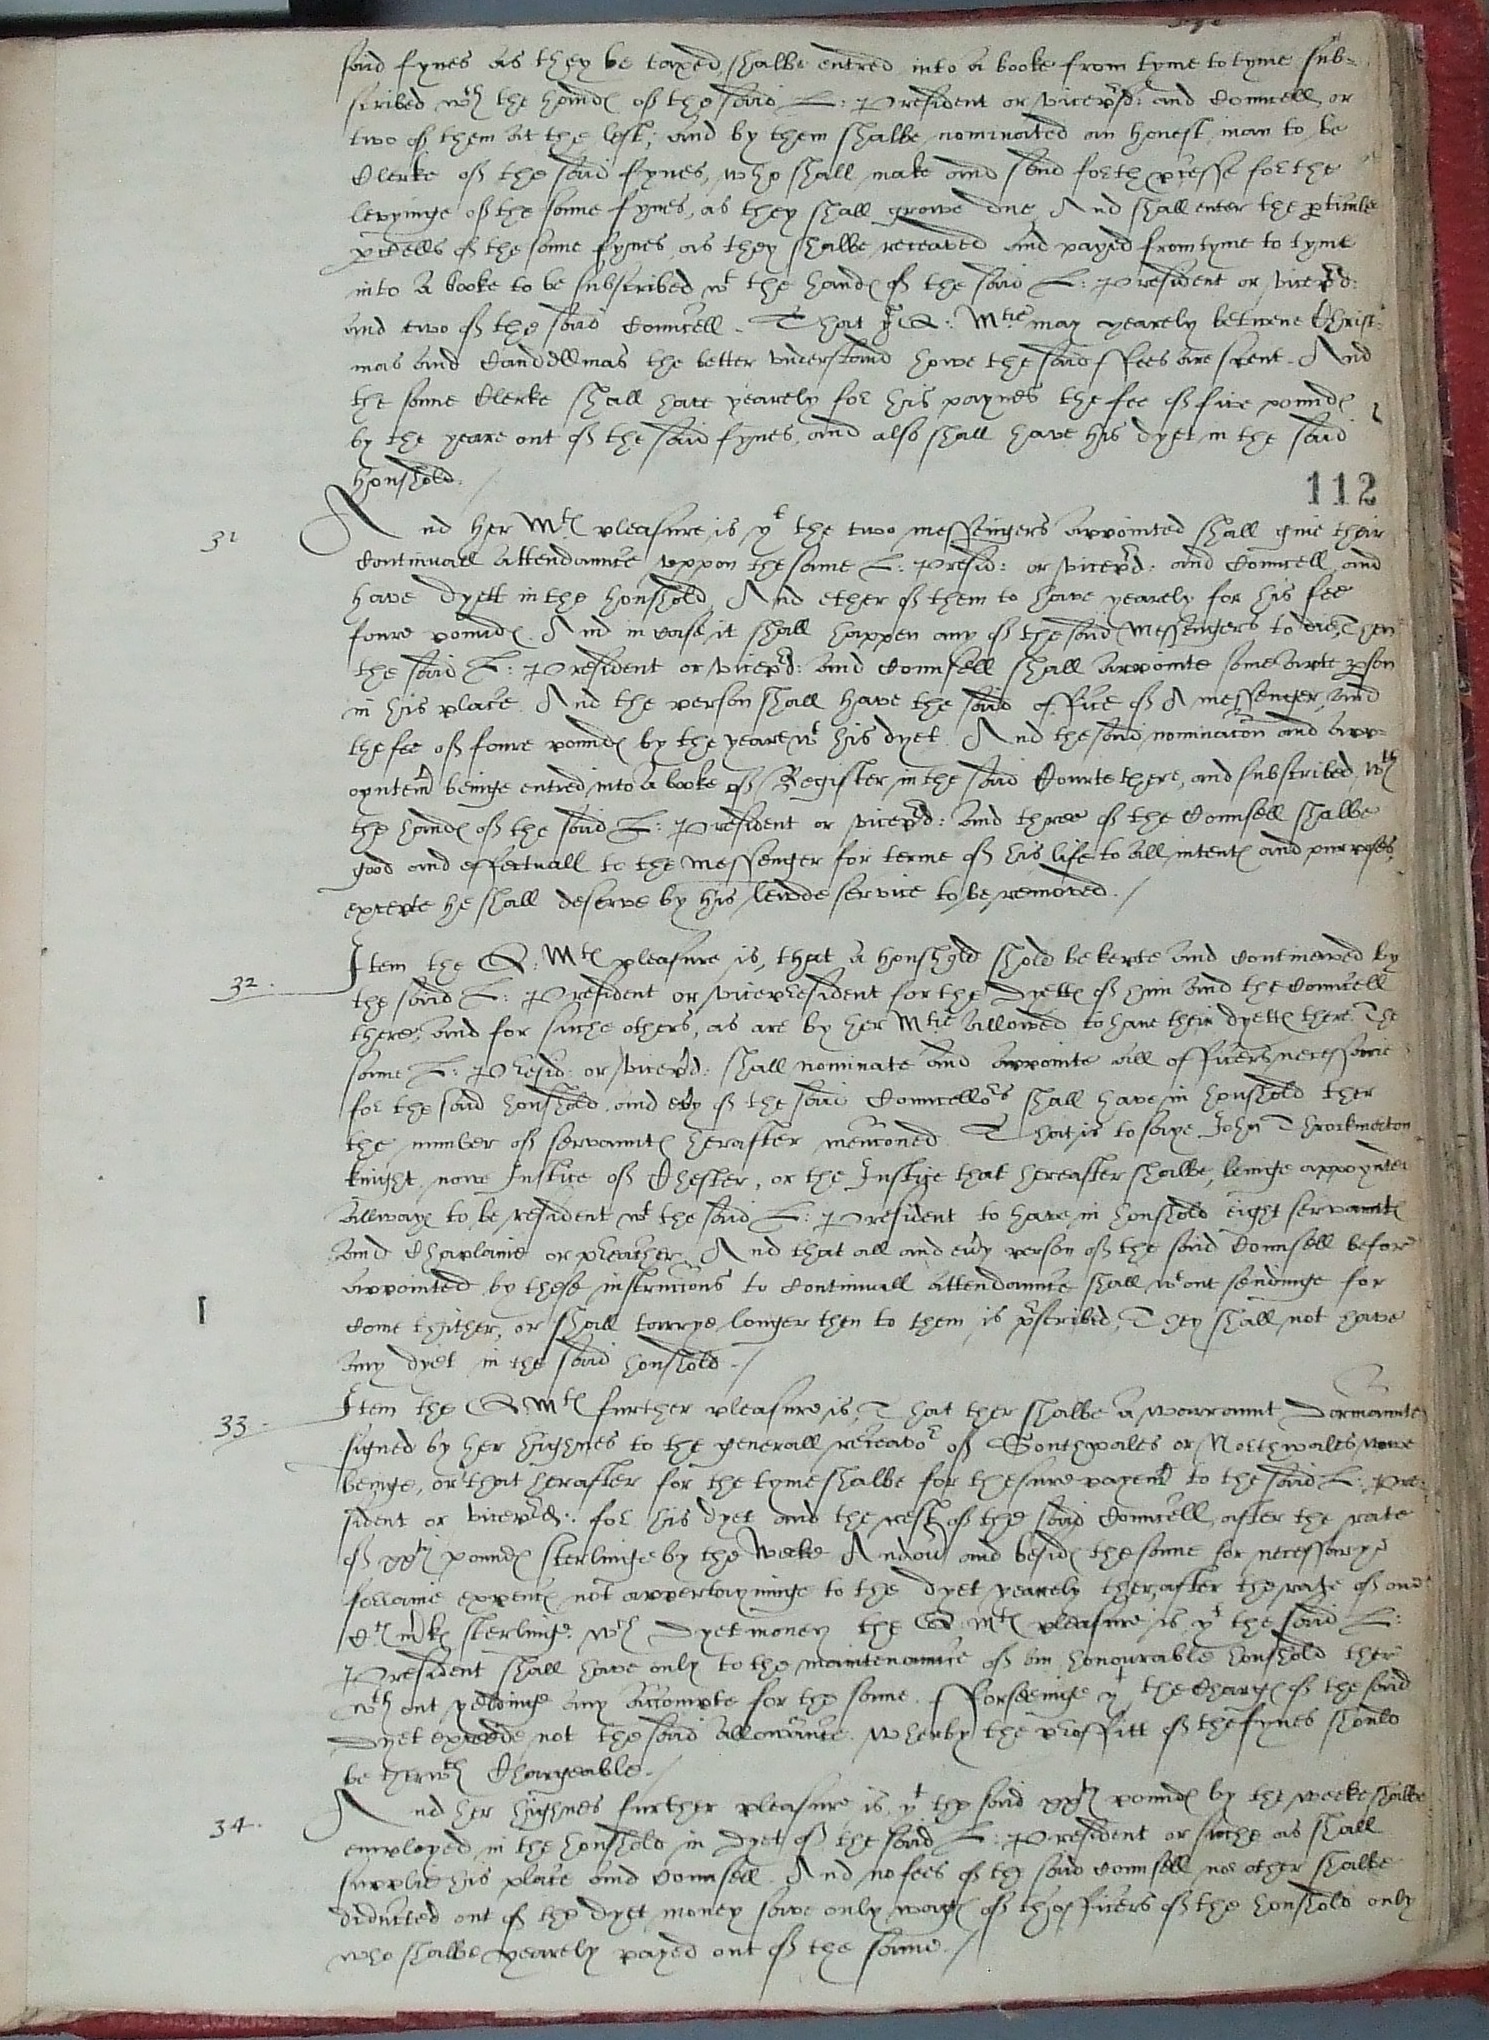 said fynes as they be taxed, shalbe entred into a booke from tyme to tyme sub=
scribed wth the hands of the said L: President or vicepsd: and Councell or
two of them at the lest; and by them shalbe nominated an honest man to be
Clerke of the said fynes, who shall make and send forth pcesse for the
levyinge of the same fynes, as they shall growe due, And shall enter the pticuler
pcells of the same fynes as they shalbe receaved and payed from tyme to tyme
into a booke to be subscribed wt the hands of the said L: President or vicepsd:
and two of the said Councell. That ye Q: Mtie may yearely betwene Christ=
mas and Canddellmas the better understand howe the said ffees are spent. And
the same Clerke shall have yearely for his paynes the fee of five pounds
by the yeare out of the said fynes, and also shall have his dyet in the said
houshold.
112
31 And her Mts pleasure is yt the two messengers appointed shall give their
Continuall attendaunce uppon the same L: Presid: or vicepsd: and Councell and
have dyett in the houshold, And ether of them to have yearely for his fee
foure pounds. And in case it shall happen any of the said Messengers to die, Then
the said L: President or vicepsd: and Counsell shall appointe some apte pson
in his place. And the person shall have the said office of A messenger, and
the fee of foure pounds by the yeare wt his dyet. And the said nominacon and app=
oyntemt beinge entred into a booke of Register in the said Courte there, and subscribed wth
the hands of the said L: President or vicepsd: and three of the Counsell shalbe
good and effectuall to the messenger for terme of his life to all intents and purposes,
excepte he shall deserve by his lewde service to be removed.
32. Item the Q: Mts pleasure is, that a houshold shold be kepte and continewed by
the said L: President or vicepresident for the Dyetts of him and the Councell
there, and for suche others, as are by her Mtie allowed to have their dyetts there. The
same L: Presid: or vicepsd: shall nominate and appointe all officers necessarie
for the said houshold, and evy of the said Councellors shall have in houshold ther
the number of servaunts herafter mencioned. That is to saye John Throckmorton
knight nowe Justice of Chester, or the Justice that hereafter shalbe, beinge appoynted
allwayes to be resident wt the said L: President to have in houshold eight servaunts
and Chaplaine or preacher. And that all and evy person of the said Counsell before
appointed by these instruccons to Continuall attendaunce shall wtout sendinge for
Come thither, or shall tarrye longer then to them is pscribed, They shall not have
any dyet in the said houshold.
33. Item the Q: Mts further pleasure is, That ther shalbe a warraunt Dormaunte
signed by her highnes to the generall receavor of Southwales or Northwales nowe
beinge, or that herafter for the tyme shalbe for the sure payemt to the said L: Pre=
sident or vicepsd: for his dyet and the rest of the said Councell, after the rate
of pounds sterlinge by the Weeke And ov and besides the same for necessary
forraine expences not appertayninge to the dyet yearely ther, after the rate of one
Cth mrks sterlinge. wch Dyet money the Q: Mts pleasure is yt the said L:
President shall have only to the maintenaunce of an honourable houshold ther
wthout yeldinge any accompte for the same. Fforseeinge yt the Charges of the said
Dyet exceede not the said allowaunce. wherby the proffitt of the fynes should
be therwth Chargeable.
34. And her highnes further pleasure is yt the said pounds by the weeke shalbe
employed in the houshold in dyet of the said L: President or suche as shall
supplie his place and Counsell. And no fees of the said Counsell nor other shalbe
diducted out of the dyet money save only wages of thofficers of the houshold only
who shalbe yearely payed out of the same.